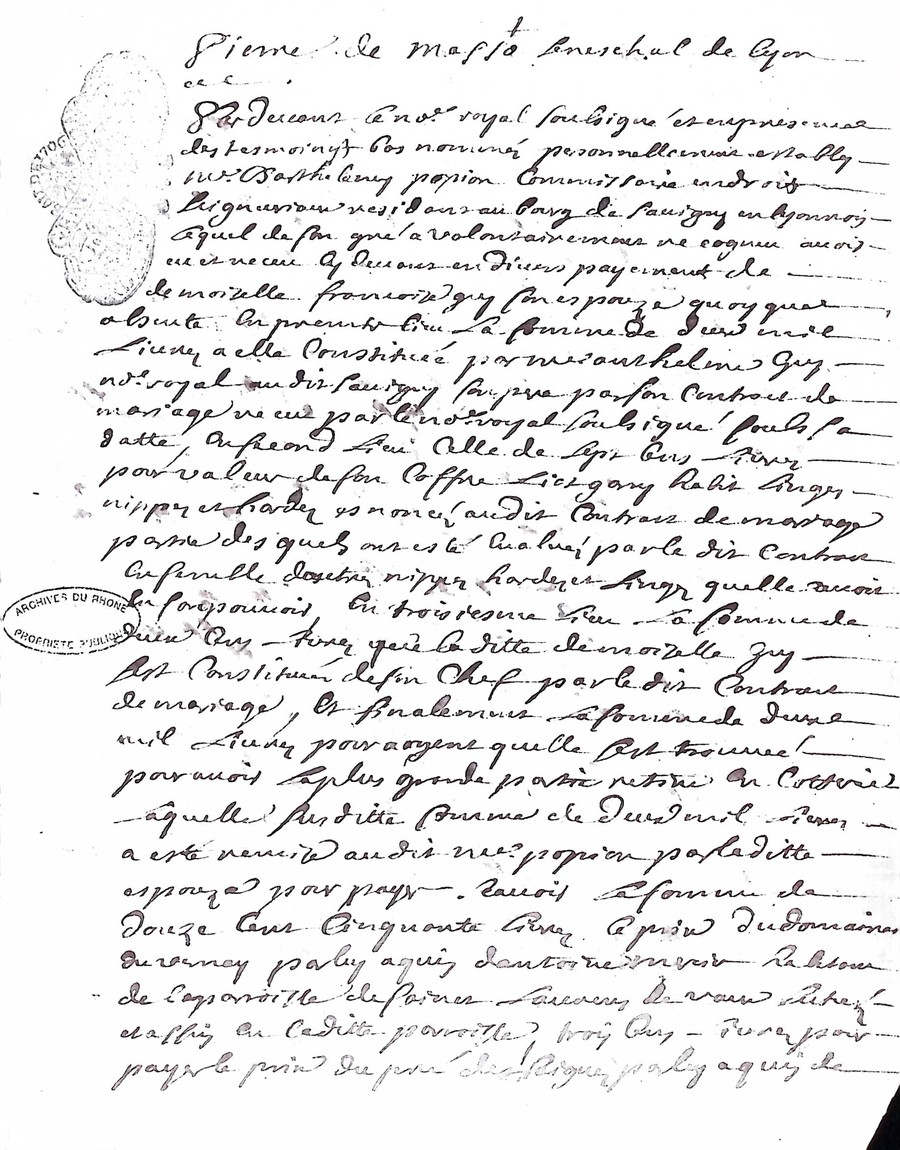 Pierre de masso seneschal de lyon
Pardevant le no.re royal soubsigné et en presence
des tesmoins bas nommés personnellement estably
m.re Barthelemy popion Commissaire en droit
seigneuriaux residant au bourg de savigny en lyonnois
lequel de son gré a volontairement recogneu avoir
eu et receu cy devant en divers payement de
demoiselle francoise guy son espouze quoy que
absente, En premier lieu La somme de deux mil
Livres a elle Constituée par m.re anthelme Guy
no.re royal audit savigny son pere par son Contract de
mariage receu par le no.re royal soubsigné soubs sa
datte, En second Lieu Celle de sept Cens Livres
pour valeur de son Coffre Lict garny habit Linges
nippes et hardes enoncés audit Contract de mariage
partie desquels ont esté Evalués par le dit Contract
Ensemble dautres nippes hardes et Linges quelle avoit
En son pouvoir, En troisiesme Lieu La somme de
deux Cens Livres que la ditte demoiselle Guy
sest Constituée de son Chef par le dit Contract
de mariage, Et finalement La somme de deux
mil Livres pour argent quelle sest trouvée
pour avoir La plus grande partie retiré En
Laquelle susditte somme de deux mil Livres
a esté remise audit m.re popion par laditte
espouze pour payer. Scavoir La somme de
douze Cent Cinquante Livres le prix du domaine
du verney par luy aquis dantoine
de la parroisse de sainct Laurens de vaux situé
et assis en laditte parroisse, trois Cens Livres pour
payer le prix du pré des par luy aquis de
ARCHIVES DU RHONE
PROPRIETE PUBLIQUE